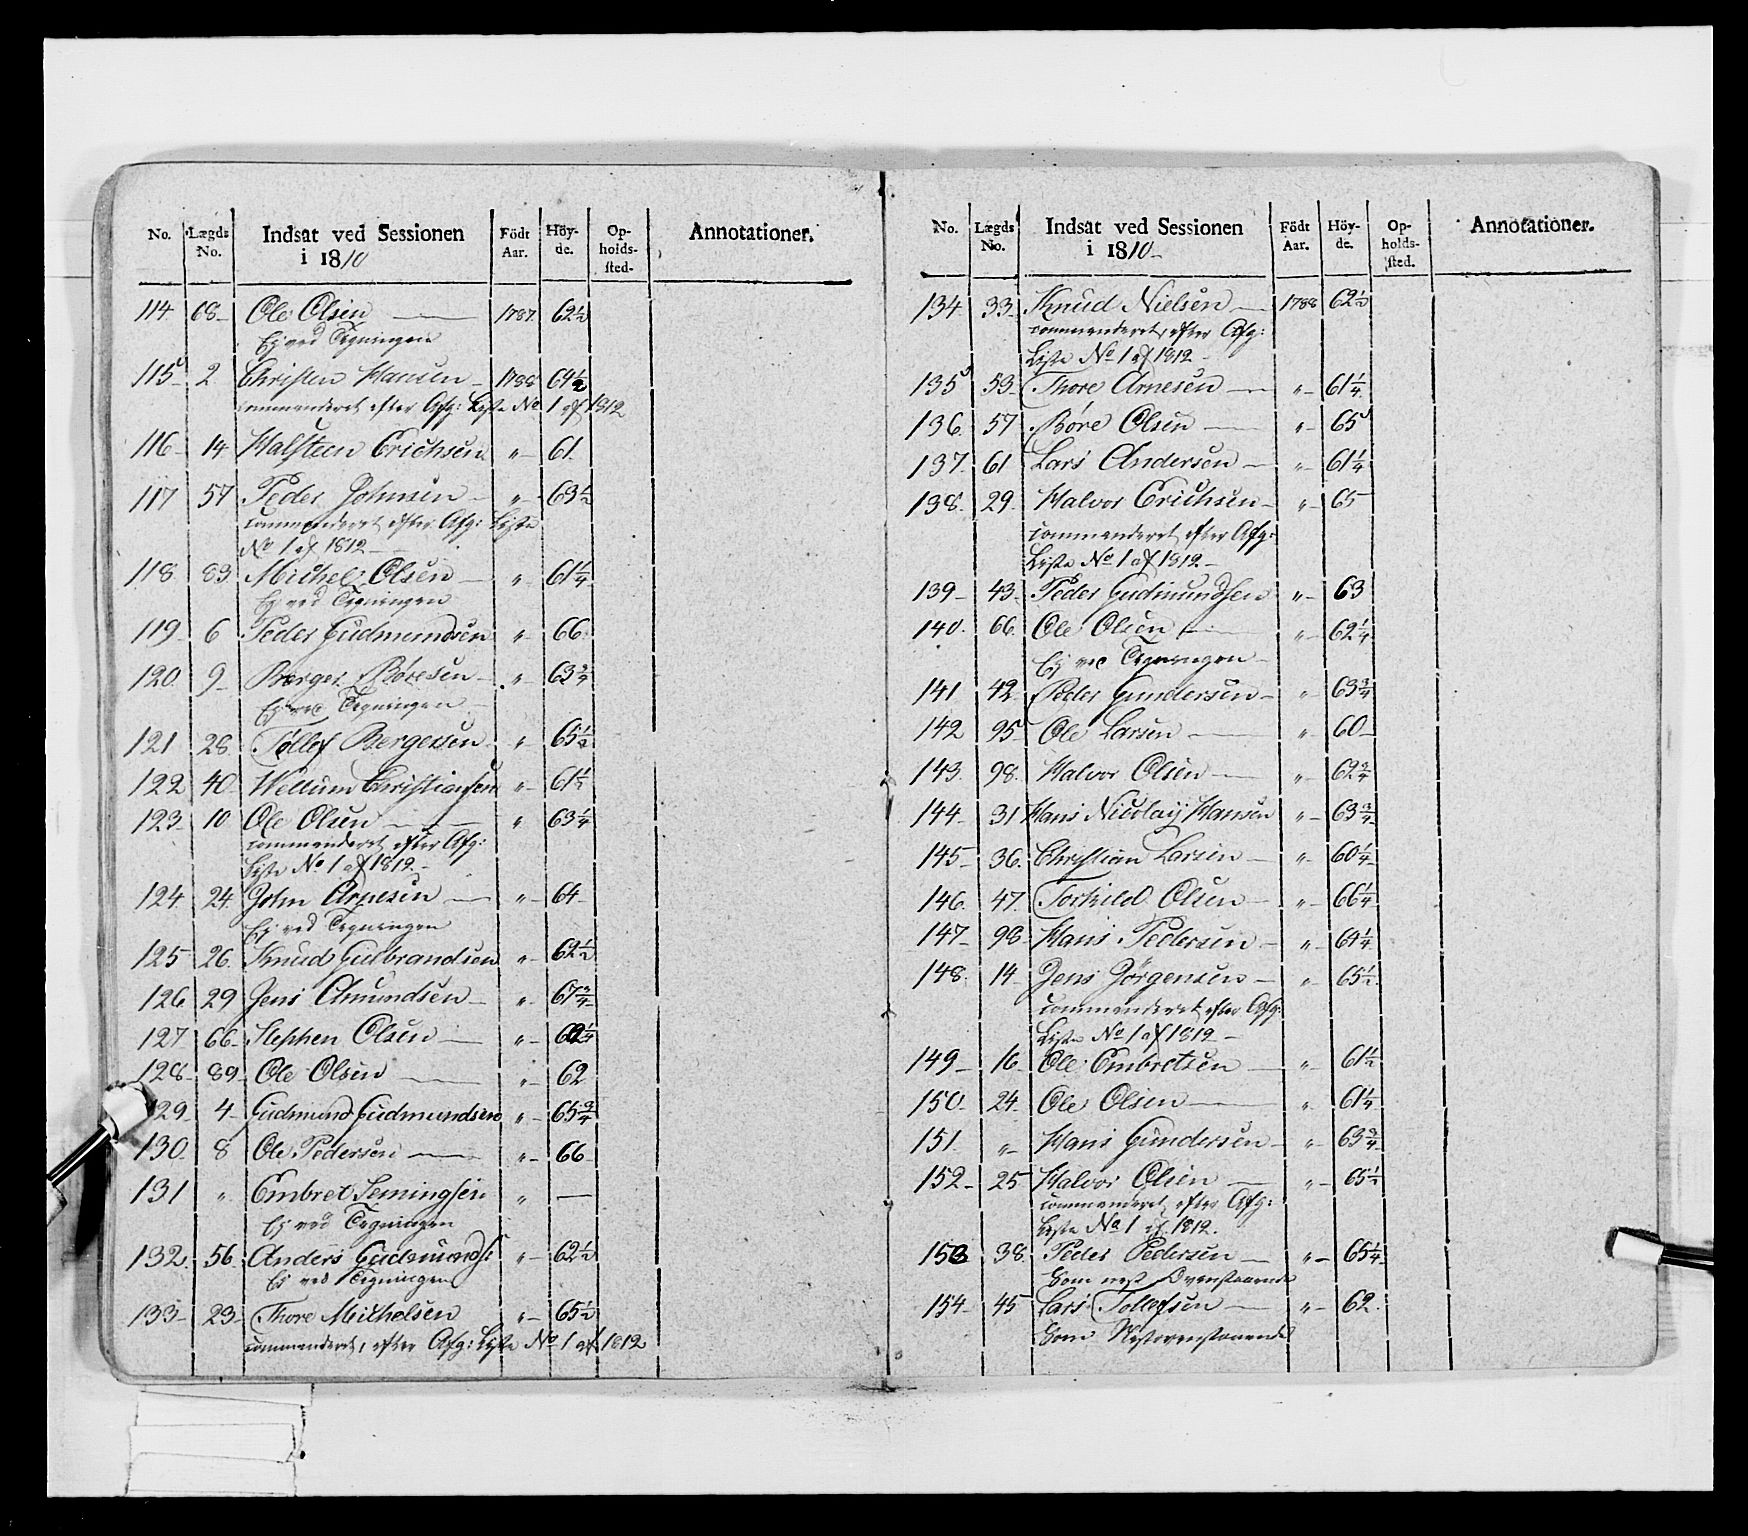 No. Lægds No. Indsat ved Sessionen i 1810 Födt Aar. Höy-de. Op-holds-sted. Annotationer.
114. 68 Ole Olsen 1787. 62½
Ej ved Tegningen
115 2 Christen Hansen 1788 64½
commanderet efter Afg: Liste No 1 af 1812
116 14 Halsteen Erichsen " 61.
117 57 Peder Johnsen " 63½
commanderet efter Afg: Liste
No 1 af 1812
118 83 Michel Olsen " 61¼
Ej ved Tegningen
119 6 Peder Gudmundsen " 66.
120 9 Berger Böresen " 63¾
Ej ved Tegningen
121 28 Tollef Bergersen " 65½
122 40 Wellum Christiansen " 61½
123 10 Ole Olsen " 63¼
commanderet efter Afg:
Liste No 1 af 1812
124 24 John Arnesen " 64
Ej ved Tegningen
125 26 Knud Gulbrandsen " 62½
126 29 Jens Amundsen " 67¾
127 66 Stephen Olsen " 62¼
128 89 Ole Olsen " 62
129 4 Gudmund Gudmundsen " 65¾
130 8 Ole Pedersen " 66
131 " Embret Semingsen " —
Ej ved Tegningen
132. 56. Anders Gudmunds " 62½
Ej ved Tegningen
133 23 Thore Michelsen " 65½
commanderet, efter Afg: Liste No 1 af 1812
No. Lægds No. Indsat ved Sessionen i 1810 Födt Aar. Höy-de. Op-holds-sted. Annotationer.
134. 33 Knud Nielsen 1788 62½
commanderet, efter Afg:
Liste No 1 af 1812
135 53 Thore Arnesen " 61¼
136. 57 Böre Olsen " 65
137. 61 Lars Andersen " 61¼
138. 29. Halvor Erichsen " 65
commanderet efter Afg:
Liste No 1 af 1812
139 43 Peder Gudmundsen " 63
140. 66. Ole Olsen " 62¼
Ej ved Tegningen
141 42 Peder Gundersen " 63¾
142 95 Ole Larsen " 60
143. 98. Halvor Olsen " 62¾
144 31 Hans Nicolay Hansen " 63¾
145 36. Christian Larsen " 60¼
146. 47. Torkild Olsen " 66¼
147 98 Hans Pedersen " 64¼
148. 14 Jens Jörgensen " 65½
commanderet efter Afg:
Liste No 1 af 1812
149 16 Ole Embretsen " 61½
150 24 Ole Olsen " 61¼
151. " Hans Gundersen " 63¾
152 25 Halvor Olsen " 65½
commanderet efter Afg:
Liste No 1 af 1812.
153 38. Peder Pedersen " 65¼
Som nest Ovenstaaende
154 45 Lars Tollefsen " 62.
Som Nestovenstaaende